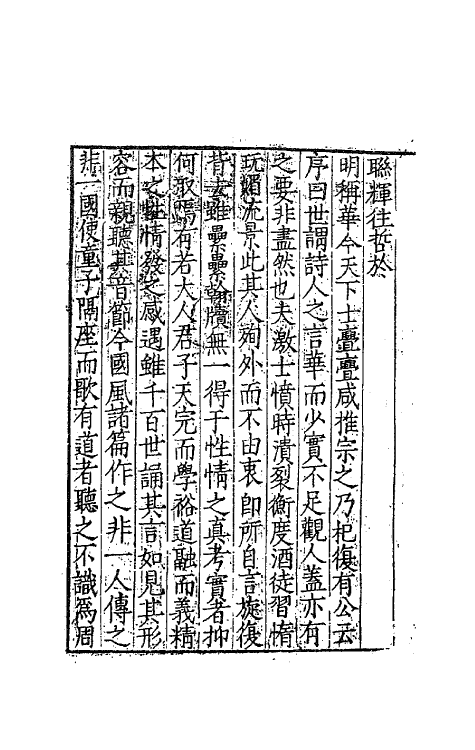 聯輝往哲於
明稱華今天下士亹亹咸推宗之乃杞復有公云
序曰世謂詩人之言華而少實不足觀人蓋亦有
之要非盡然也夫激士憤時潰裂衡度酒徒習惰
玩媚流景此其人殉外而不由衷卽所自言旋復
背雖纍纍翰牘無一得于性情之真考實者抑
何取焉有若大人君子天完而學裕道融而義精
本之性情發之感遇雖千百世誦其言如見其形
容而親聽其音節今國風諸篇作之非一人傳之
非一國使童子隔座而歌有道者聽之不識爲周